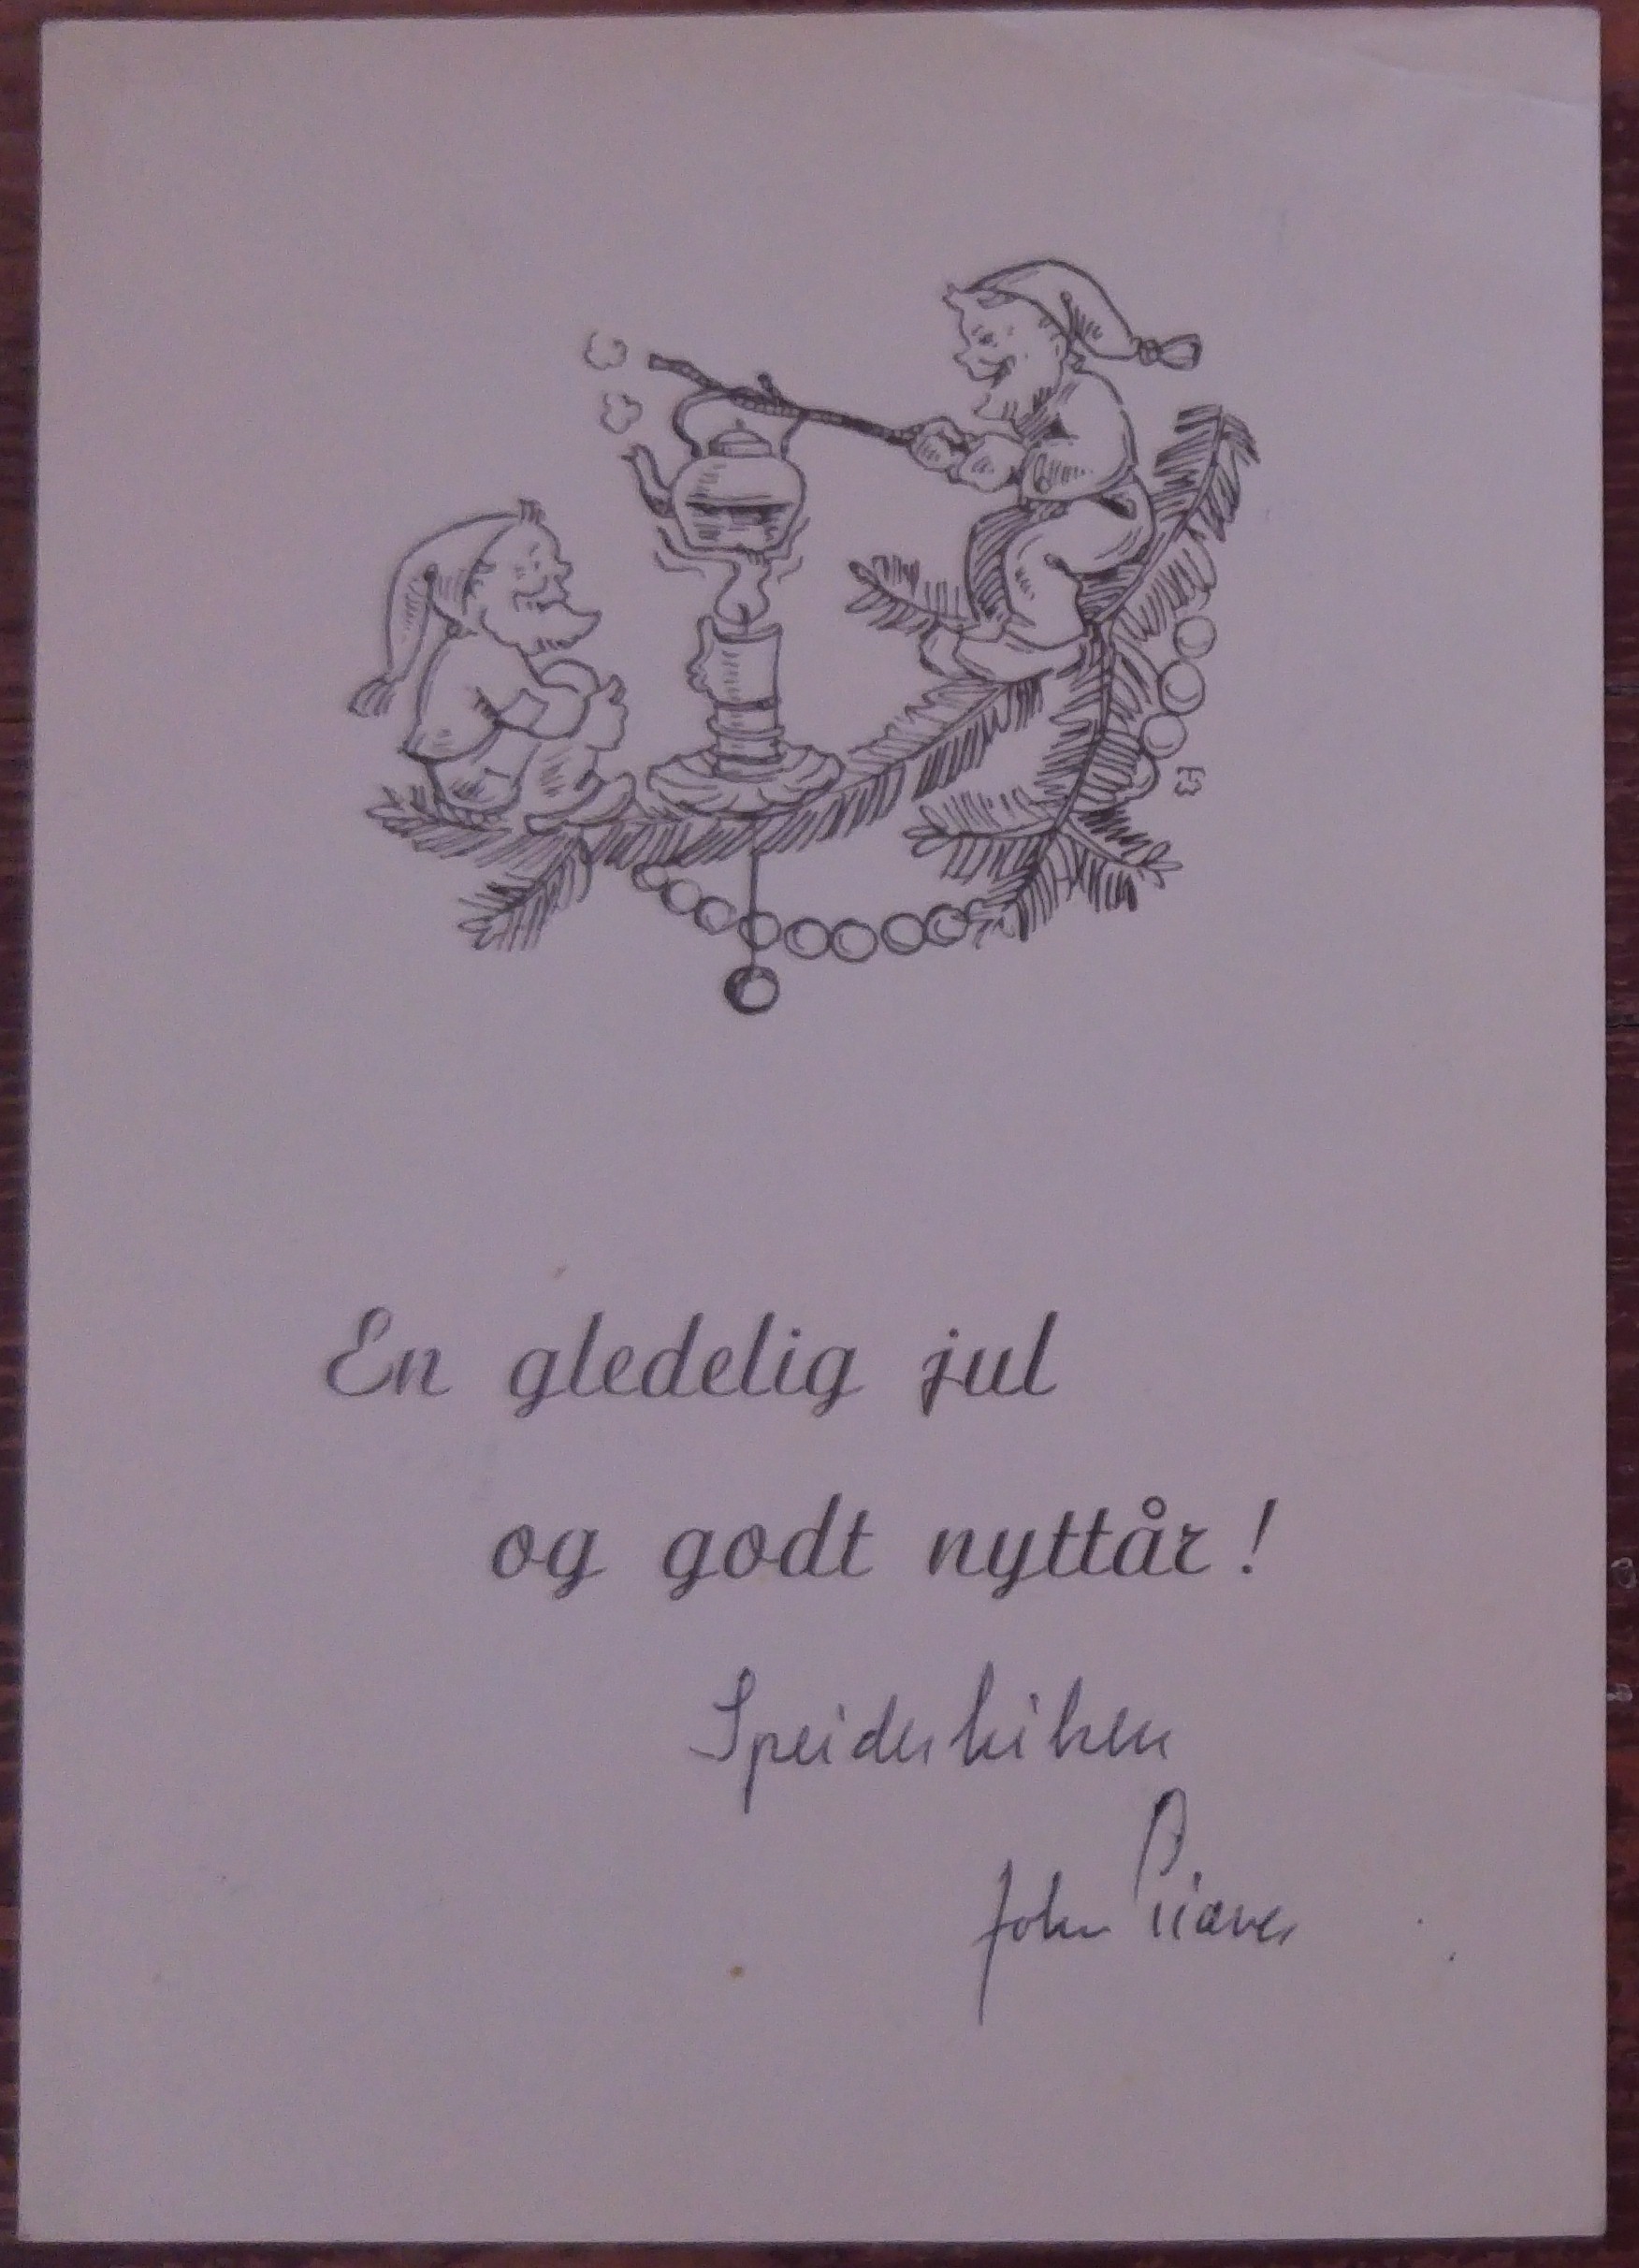 En gledelig jul
og godt nyttår!
Speiderhilsen
John